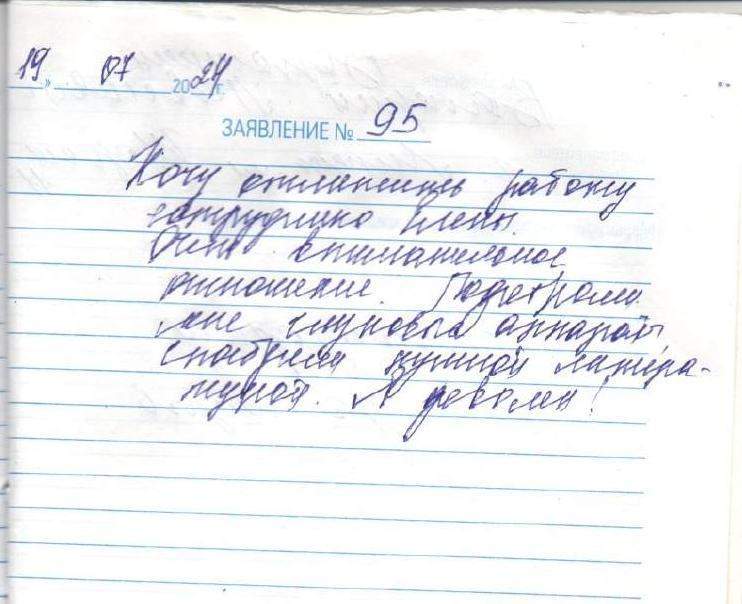 19 » 07 2024 г.
ЗАЯВЛЕНИЕ № 95
Хочу отметить работу
сотрудника Елены.
Очень внимательное
отношение. Подобрали
мне слуховой аппарат,
снабдили нужной литера-
турой. Я доволен!